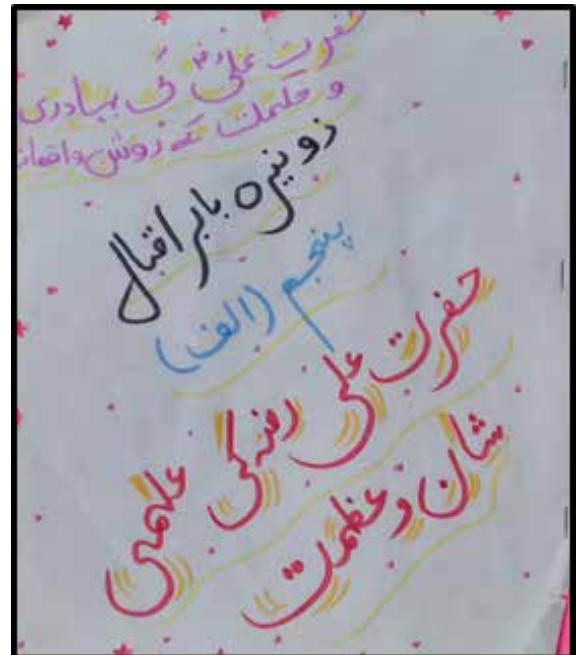 حضرت علیؓ کی بہادری
و حکمت کے روشن واقعات
زونیرہ بابر اقبال
پنجم (الف)
حضرت علی رضہ کی علمی
شان و عظمت